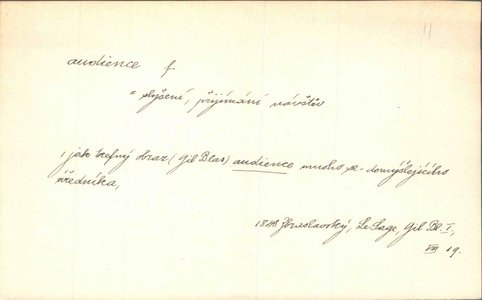 audience f.
= slyšení, přijímání návštěv
, jako trefný obraz (Gil Blas) audience mnoho se domýšlejícího
úředníka,
Le Sage, Gil Bl. I,
VIII 19.